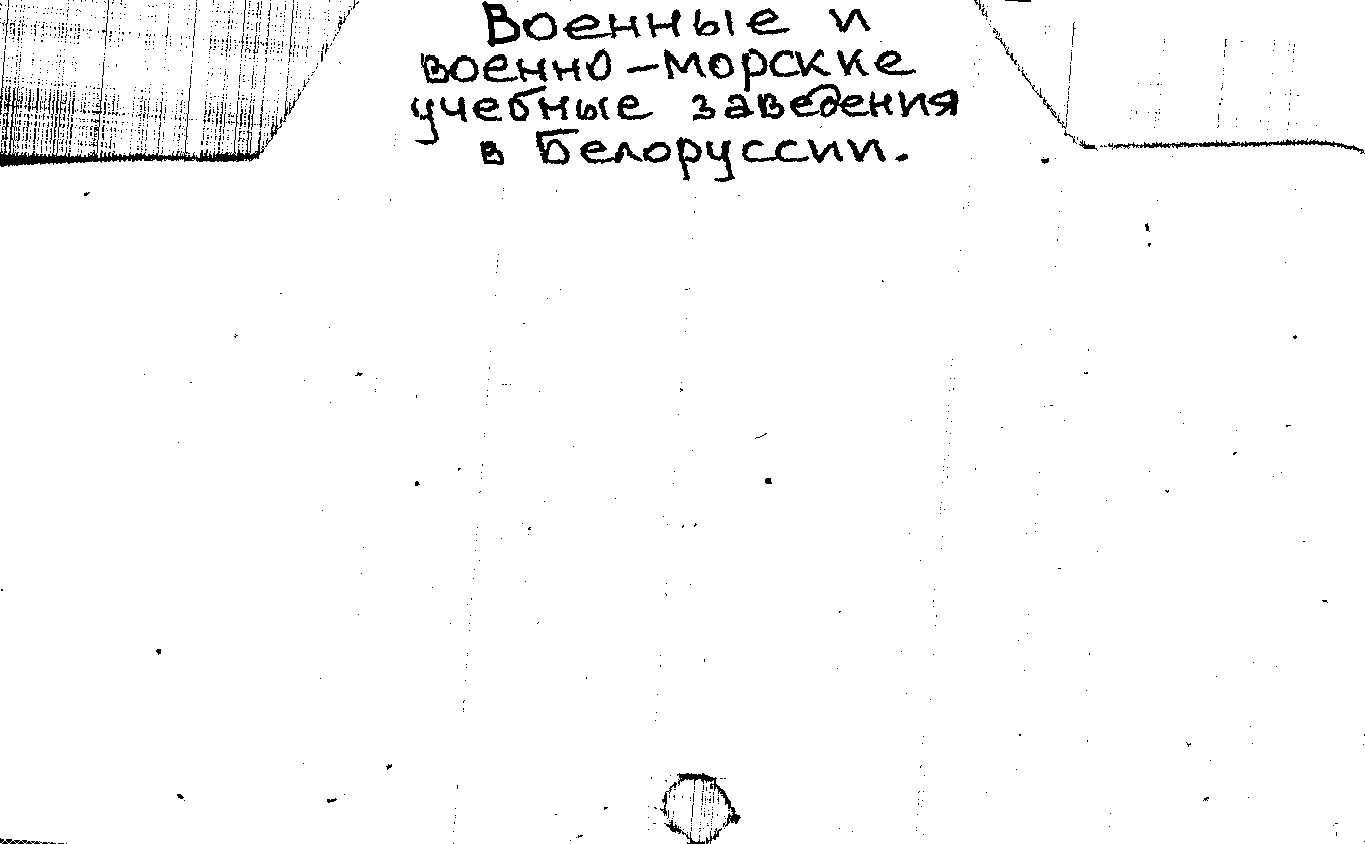 Военные и
военно-морскке
учебные заведения
в Белоруссии.